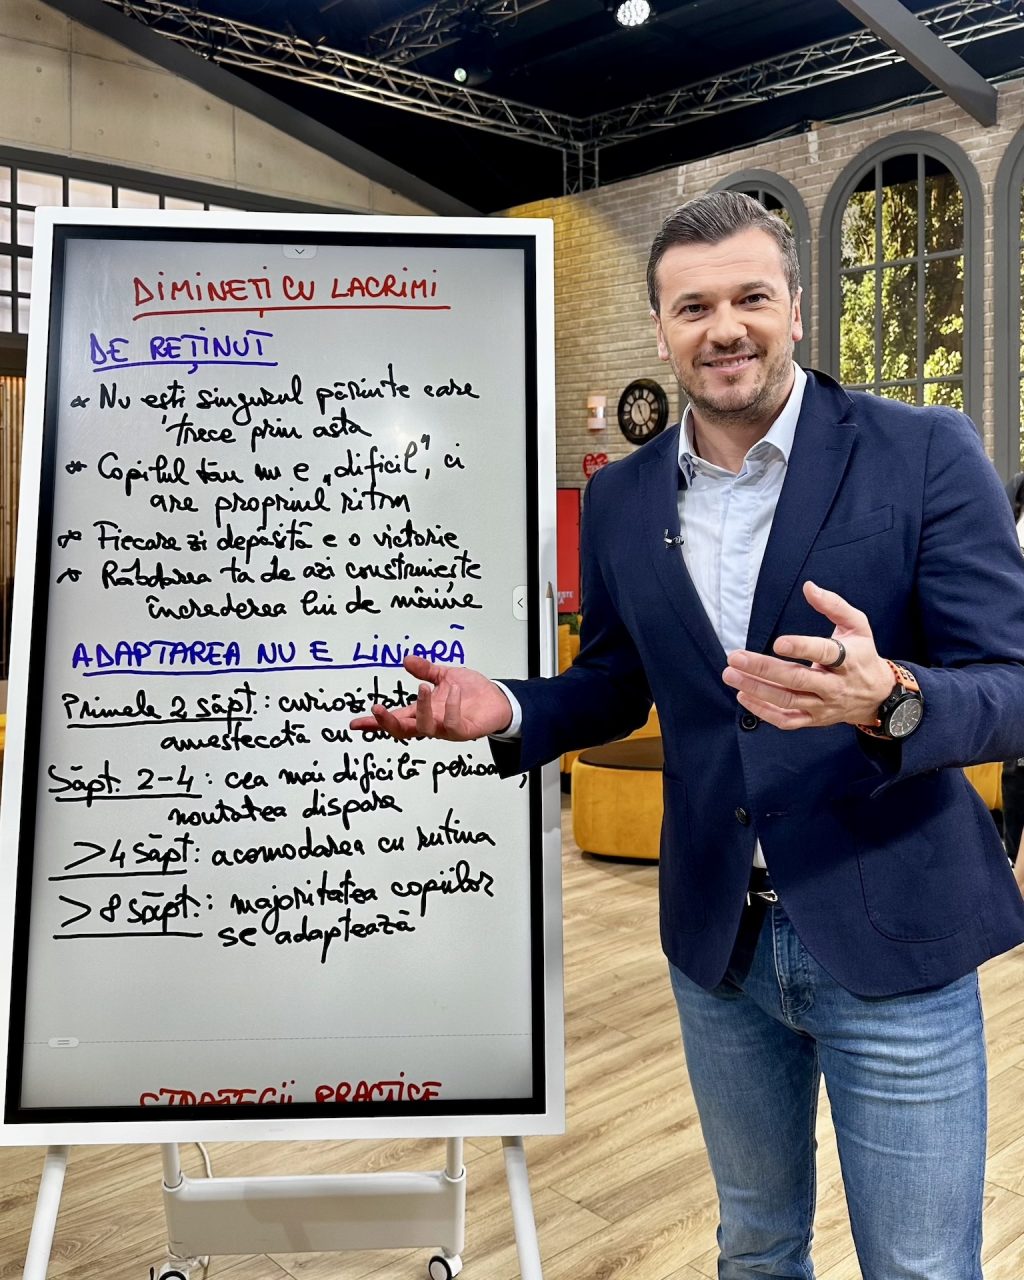 DIMINEȚI CU LACRIMI
DE REȚINUT
* Nu ești singurul părinte care
trece prin asta
* Copilul tău nu e „dificil", ci
are propriul ritm
* Fiecare zi depășită e o victorie
* Răbdarea ta de azi construiește
încrederea lui de mâine
ADAPTAREA NU E LINIARĂ
Primele 2 săpt.: curiozitate
amestecată cu
Săpt. 2-4: cea mai dificilă perioa
noutatea dispare
>4 săpt: acomodarea cu rutina
>8 săpt.: majoritatea copiilor
se adaptează
STRATEGII PRACTICE